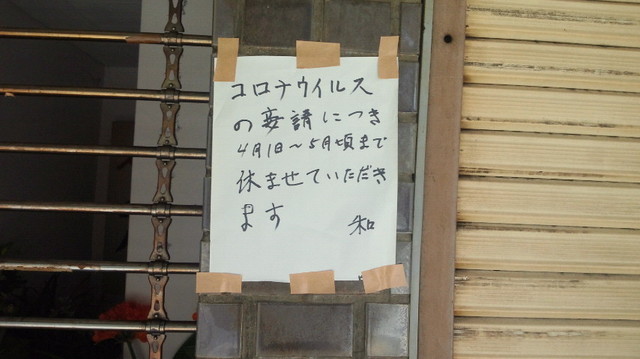 コロナウイルス
の要請につき
4月1日〜5月頃まで
休ませていただき
ます 和